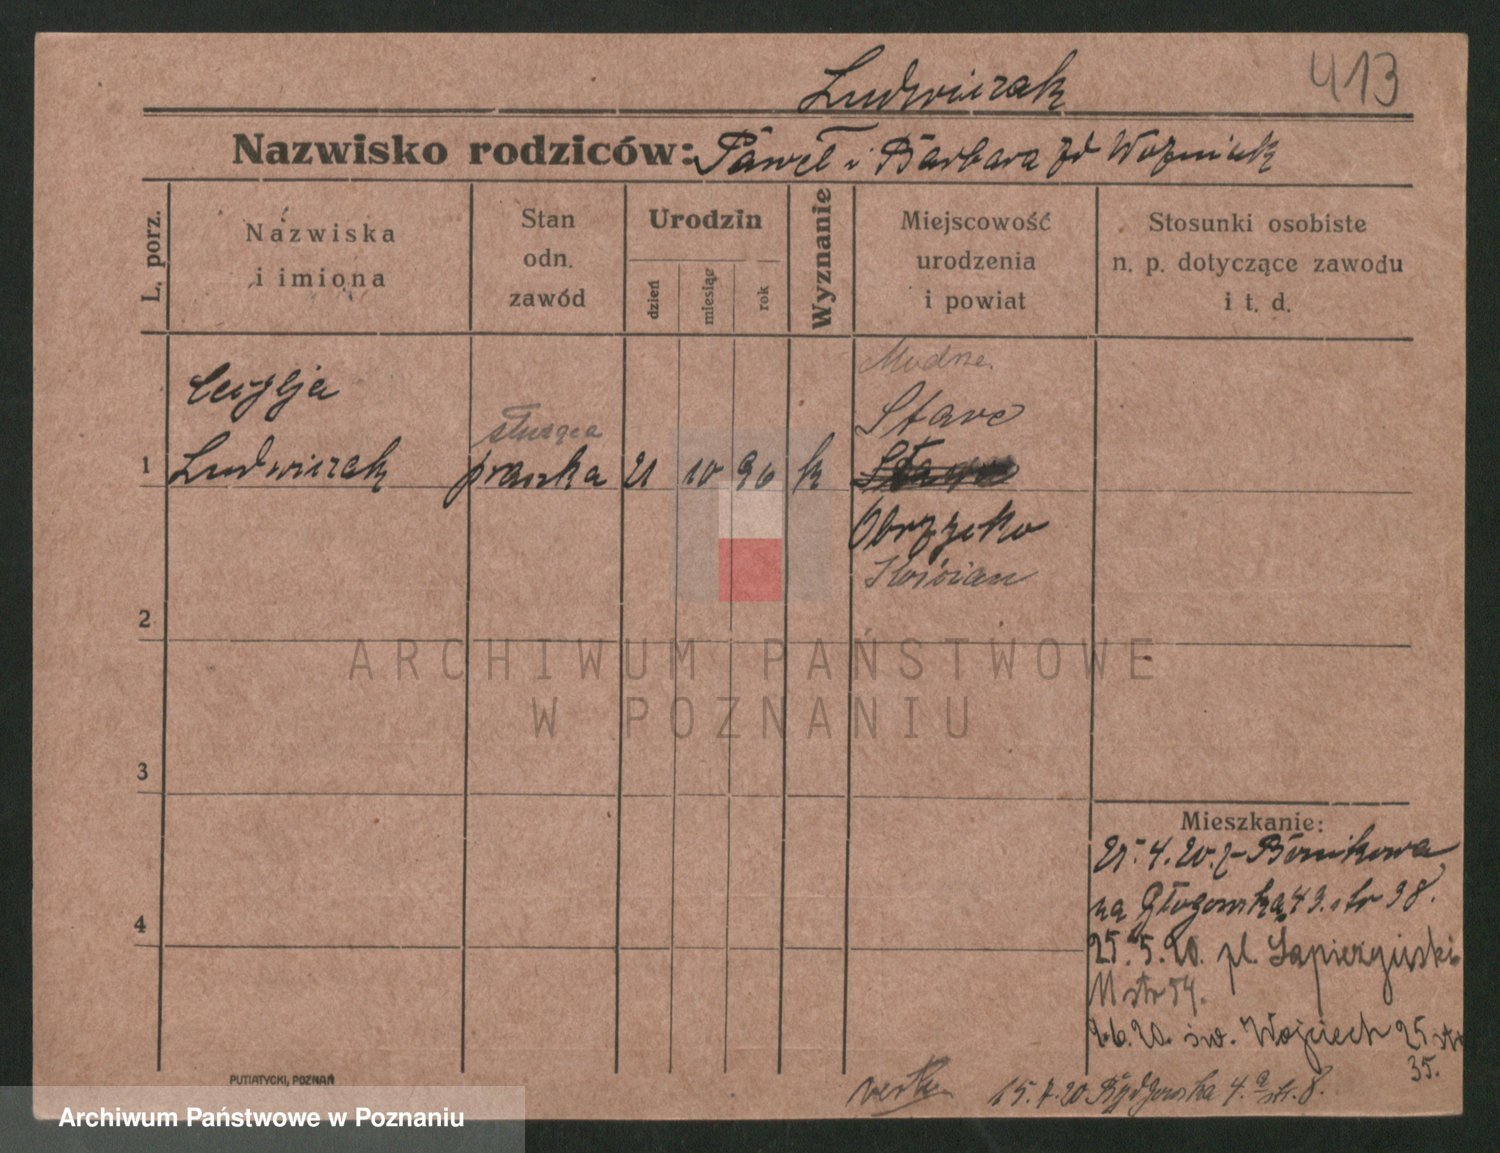 Ludwiczak
413
Nazwisko rodziców: Paweł i Barbara zd Wozniak
L. porz.
Nazwiska
i imiona
Stan
odn.
zawód
Urodzin
dzień
miesiąc
rok
Wyznanie
Miejscowość
urodzenia
i powiat
Stosunki osobiste
n. p. dotyczące zawodu
i t. d.
Cecylja
służąca
1 Ludwiczak praczka 21 10 96 k
Stare
Obrzycko
Kościan
2
3
4
Mieszkanie:
25.4.20. z
na Głogowską 43. str 38.
25.5.20. pl. Sapieżyński
11 str 54.
2.6.20. św. Wojciech 25 str
35.
15.7.20. Bydgowska 4.a str. 8.
PUTIATYCKI, POZNAŃ
ARCHIWUM PAŃSTWOWE
W POZNANIU
Archiwum Państwowe w Poznaniu